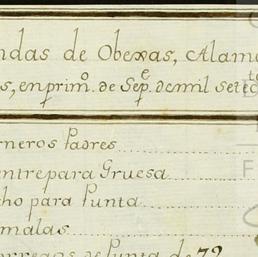 ndas de Obexas, Alam
s, en prim.o de Sep.e de mil setec
rneros Padres
entre para Gruesa
cho para Punta
malas
orregos de Punta de 72